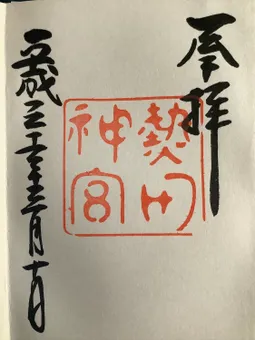 奉拝
熱田神宮
平成三十年三月十日